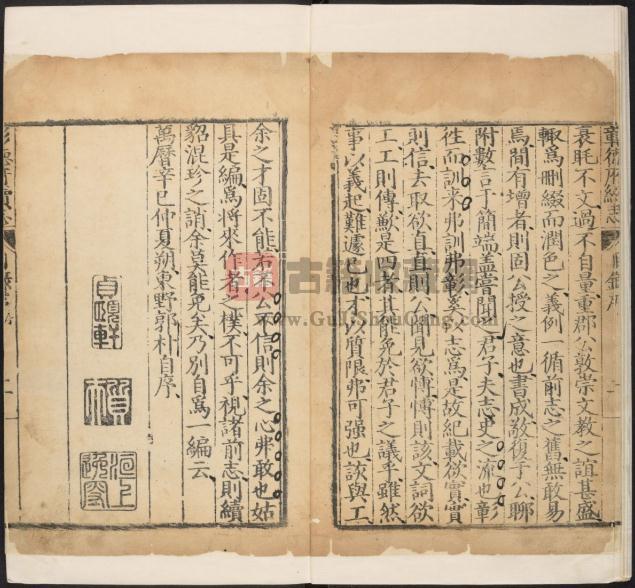 衰眊不文過不自量重郡公敦崇文教之誼甚盛
輙爲刪綴而潤色之義例一循前志之舊無敢易
焉間有增者則固公授之意也書成敬復于公聊
附數言于簡端蓋嘗聞之君子夫志史之流也彰
徃而訓来弗訓弗彰奚以志爲是故紀載欲實實
則信去取欲直直則公聞見欲愽愽則該文詞欲
工工則傳歉是四者其能免於君子之議乎雖然
事以義起難遽已也才以質限弗可强也該與工
余之才固不能若公不信則余之心弗敢也姑
具是編爲將來作者之樸不可乎視諸前志則續
貂混珍之誚余莫能免矣乃別自爲一編云
萬曆辛巳仲夏朔東野郭朴自序
貞頤軒
古籍收藏網
www.GuJiShouCang.com